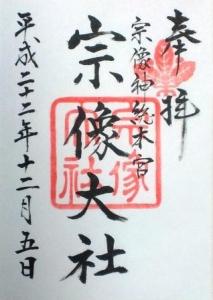 奉拝
宗像神総本宮
宗像大社
宗像
大社
平成二十二年十二月五日